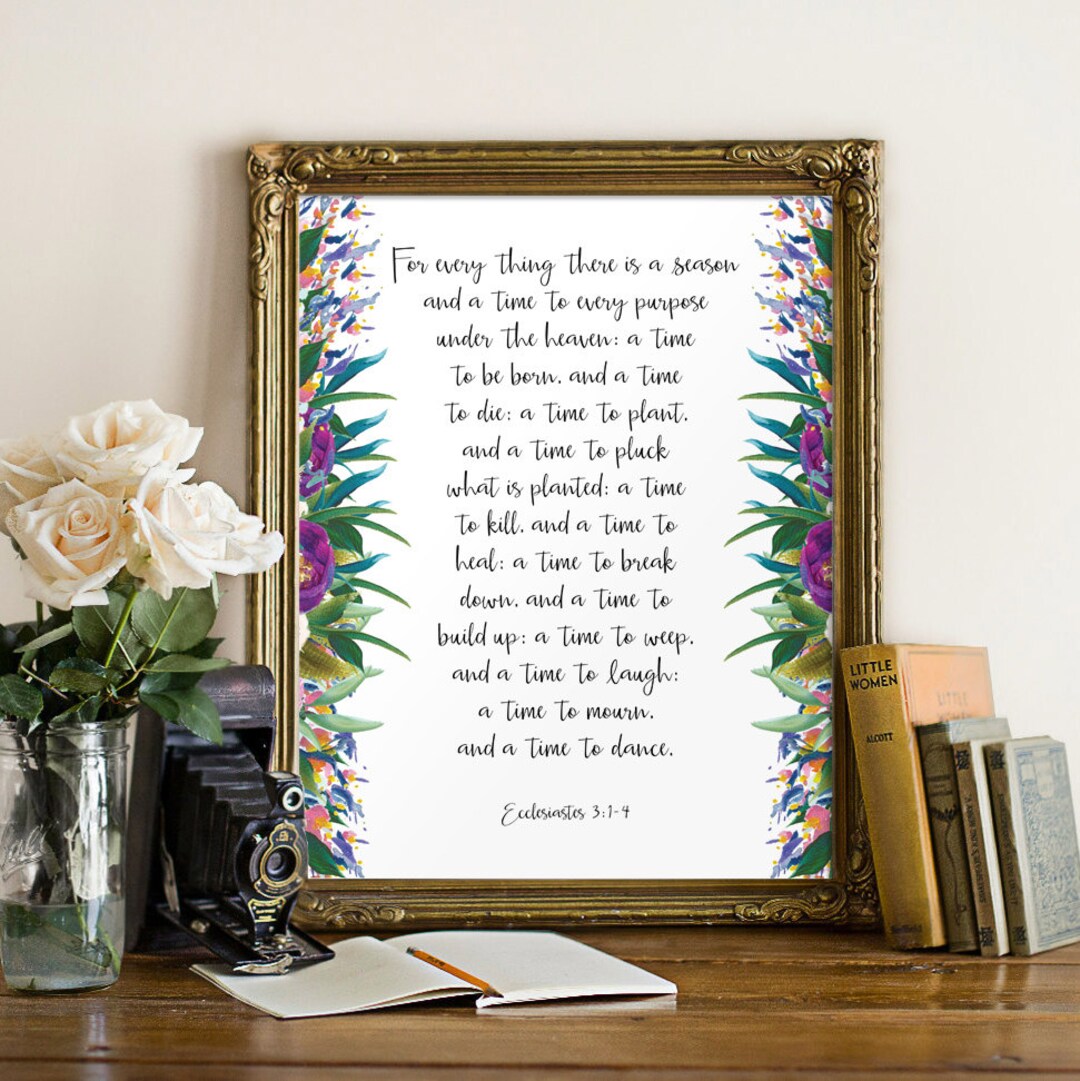 For every thing there is a season
and a time to every purpose
under the heaven: a time
to be born, and a time
to die: a time to plant,
and a time to pluck
what is planted: a time
to kill, and a time to
heal: a time to break
down, and a time to
build up: a time to weep,
and a time to laugh:
a time to mourn,
and a time to dance.
Ecclesiastes 3:1-4
LITTLE
WOMEN
ALCOTT
LITTLE